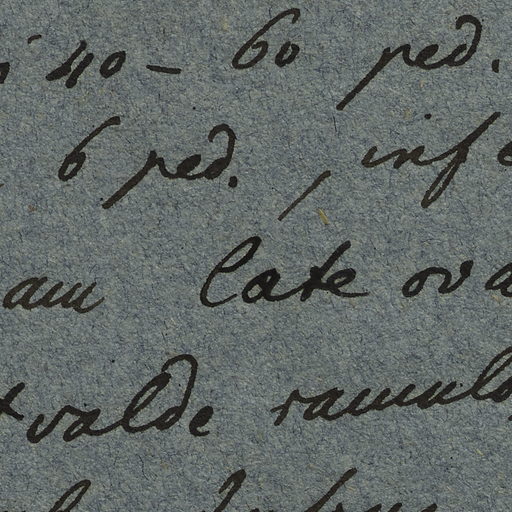 40 – 60 ped.
6 ped., infe
am late ova
valde ramulo